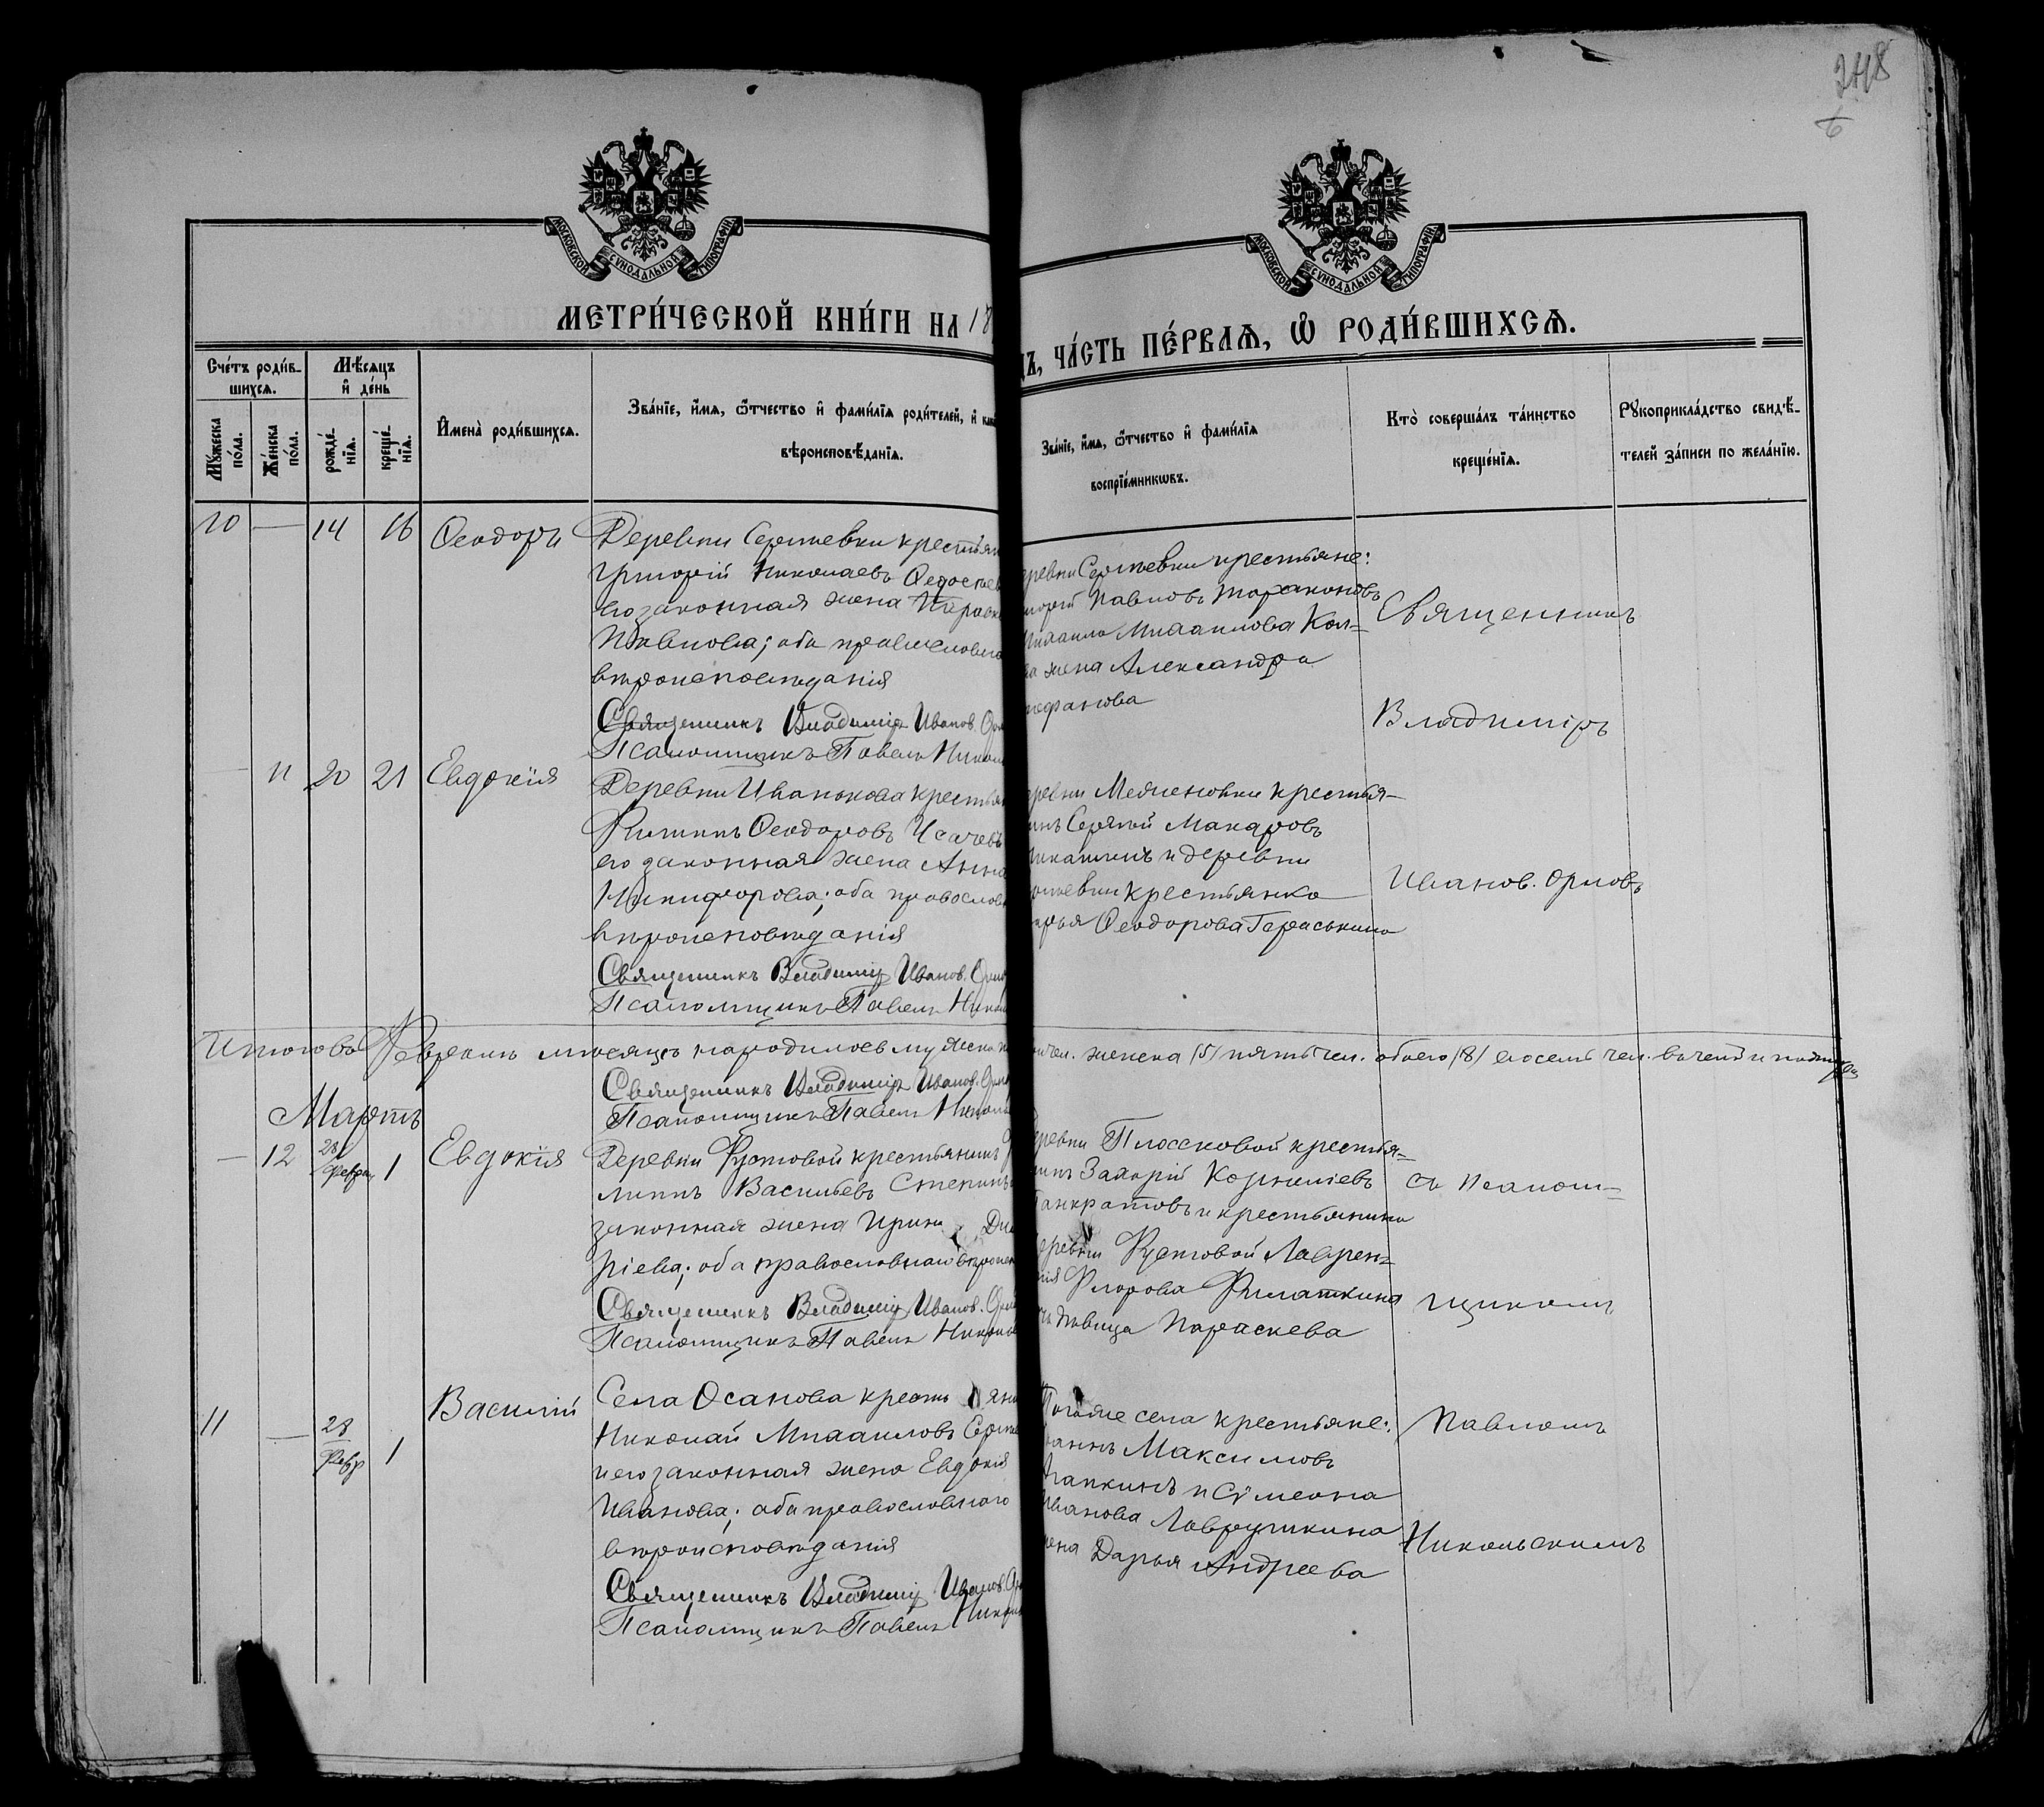 248
6
МОСКОВСКОЙ СѴНОДАЛЬНОЙ ТИПОГРАФІИ
МОСКОВСКОЙ СѴНОДАЛЬНОЙ ТИПОГРАФІИ
МЕТРИ́ЧЕСКОЙ КНИ́ГИ НА 18
ЧА́СТЬ ПЕ́РВАѦ, Ѡ҆ РОДИ́ВШИХСѦ.
Сче́тъ роди́в-
шихсѧ.
Мѣ́сѧцъ
и҆ де́нь
Мꙋ́жеска
по́ла.
Же́нска
по́ла.
рожде́-
нїѧ.
креще́-
нїѧ.
И҆мена̀ роди́вшихсѧ.
Зва́нїе, и҆́мѧ, ѻ҆́тчество и҆ фами́лїѧ роди́телей, и҆
вѣроисповѣ́данїѧ.
Зва́нїе, и҆́мѧ, ѻ҆́тчество и҆ фами́лїѧ
воспрїе́мникѡвъ.
Кто̀ соверша́лъ та́инство
креще́нїѧ.
Рꙋкоприкла́дство свидѣ́-
телей за́писи по жела́нїю.
10 — 14 16 Ѳеодоръ
Деревни Сергѣевки крестьян
Григорій Николаевъ Ѳедосѣев
его законная жена Параск
Павлова; оба православнаго
вѣроисповѣданія
Священникъ Владиміръ Иванов. Орл
Псаломщикъ Павелъ Никол
еревни Сергѣевки крестьяне:
горій Павловъ Таракановъ
Михаила Михаилова Кол-
ва жена Александра
тефанова
Священникъ
Владиміръ
Иванов. Орловъ
— 11 20 21 Евдокія
Деревни Иванькова крестьян
Филиппъ Ѳеодоровъ Исачевъ
его законная жена Анна
Никифорова; оба православ
вѣроисповѣданія
Священникъ Владиміръ Иванов. Орло
Псаломщикъ Павелъ Никол
еревни крестья-
инъ Сергѣй Макаровъ
и деревни
гѣевки крестьянка
арья Ѳеодорова Гераськина
Итого въ Февралѣ мѣсяцѣ народилось мужеска п
чел. женска (5) пять чел. обоего (8) восемь чел.
Священникъ Владиміръ Иванов. Орло
Псаломщикъ Павелъ Никол
Мартъ
— 12 28 Февр. 1 Евдокія
Деревни крестьянинъ
Васильевъ Степинъ
законная жена Ирина Дми
ріева; оба православнаго вѣроиспов
Священникъ Владиміръ Иванов. Орл
Псаломщикъ Павелъ Никол
еревни Плоссковой крестья-
нинъ Захарій Корниліевъ
Панкратовъ и крестьянина
деревни Лаврен-
тія Флорова Филаткина
дѣвица Параскева
съ псалом-
щикомъ
11 — 28 Февр 1 Василій
Села Осанова крестьянин
Николай Михаиловъ Серг
и его законная жена Евдокія
Иванова; оба православнаго
вѣроисповѣданія
Священникъ Владиміръ Иванов. Ор
Псаломщикъ Павелъ Никол
Того же села крестьяне:
Іоаннъ Максимовъ
Агапкинъ и Сѵмеона
Иванова Лаврушкина
жена Дарья Андреева
Павломъ
Никольскимъ